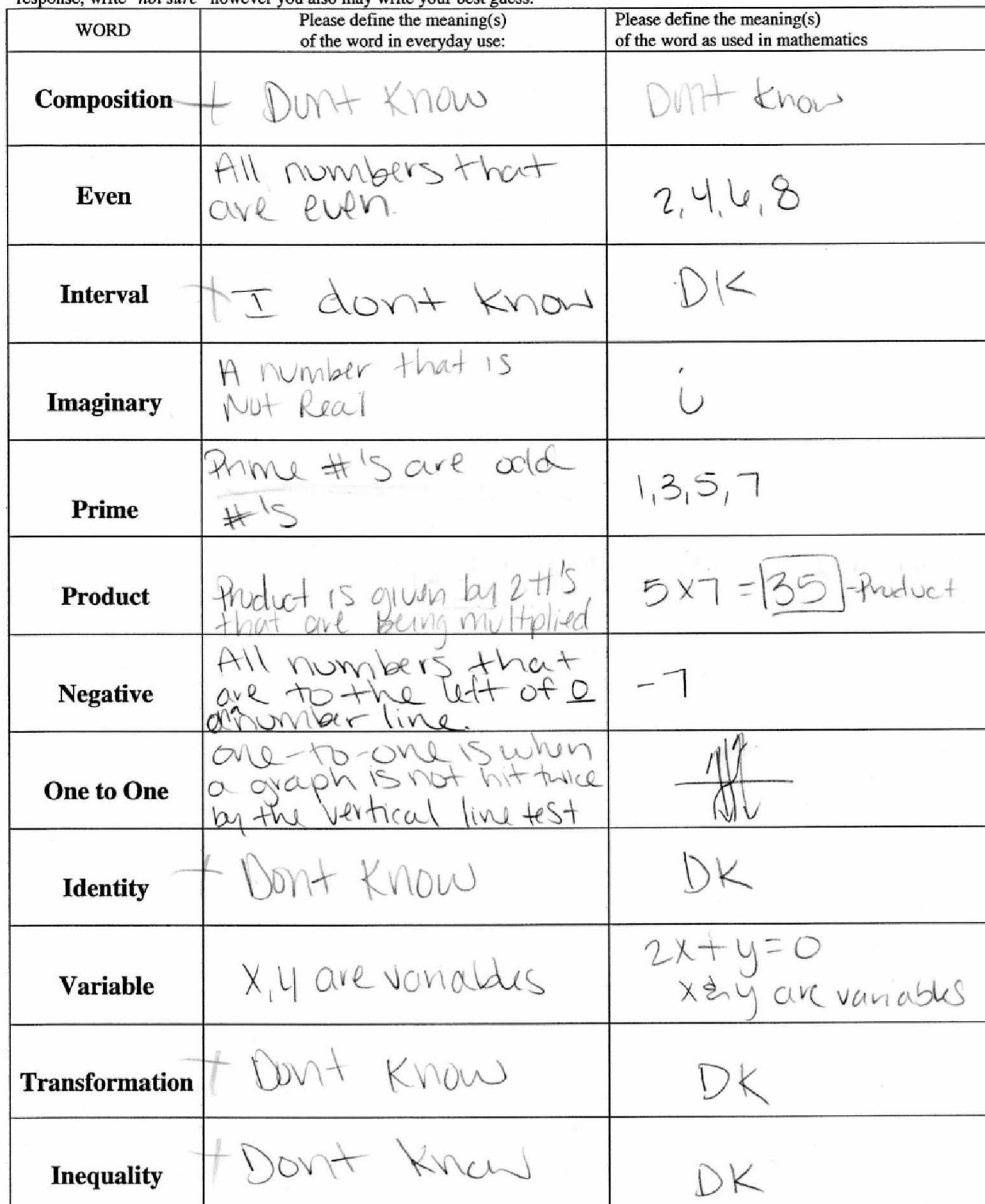 response, write "not sure" however you also may write your best guess.
WORD
Please define the meaning(s)
of the word in everyday use:
Please define the meaning(s)
of the word as used in mathematics
Composition
Dunt Know
Dunt know
Even
All numbers that
are even.
2,4,6,8
Interval
I dont know
DK
Imaginary
A number that is
Not Real
i
Prime
Prime #'s are odd
#'s
1,3,5,7
Product
Product is given by 2 #'s
that are being multiplied
5x7=35-Product
Negative
All numbers that
are to the left of 0
on number line.
-7
One to One
one-to-one is when
a graph is not hit twice
by the vertical line test
Identity
Dont Know
DK
Variable
X,y are variables
2x+y=0
x & y are variables
Transformation
Dont Know
DK
Inequality
Dont Know
DK